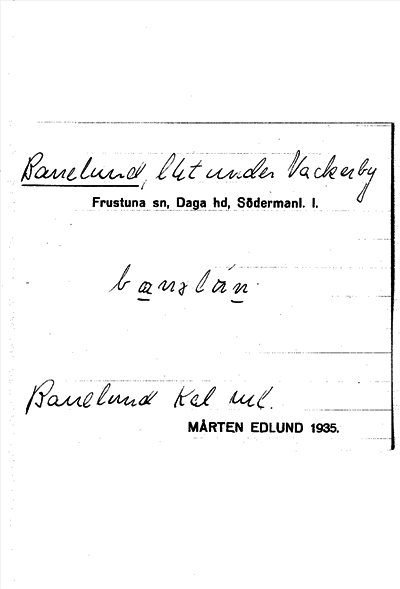 Banelund, lht under Vackerby
Frustuna sn, Daga hd, Södermanl. l.
Banelund
MÅRTEN EDLUND 1935.